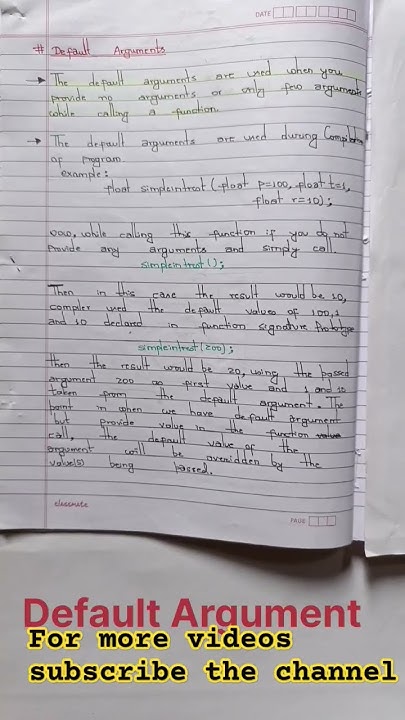 DATE
# Default Arguments
→ The default arguments are used when you
provide no arguments or only few arguments
while calling a function.
→ The default arguments are used during Compilation
of program.
example:
float simpleintrest (float p=100, float t=1,
float r=10);
now, while calling this function if you do not
Provide any arguments and simply call.
simpleintrest();
Then in this case the result would be 10,
compiler used the default values of 100, 1
and 10 declared in function signature Prototype
simpleintrest(200);
then the result would be 20, using the passed
argument 200 as first value and 1 and 10
taken from the default argument. The
point in when we have default argument
but provide value in the function
call, the default value of the
argument will be overidden by the
value(s) being passed.
classmate
PAGE
Default Argument
For more videos
subscribe the channel